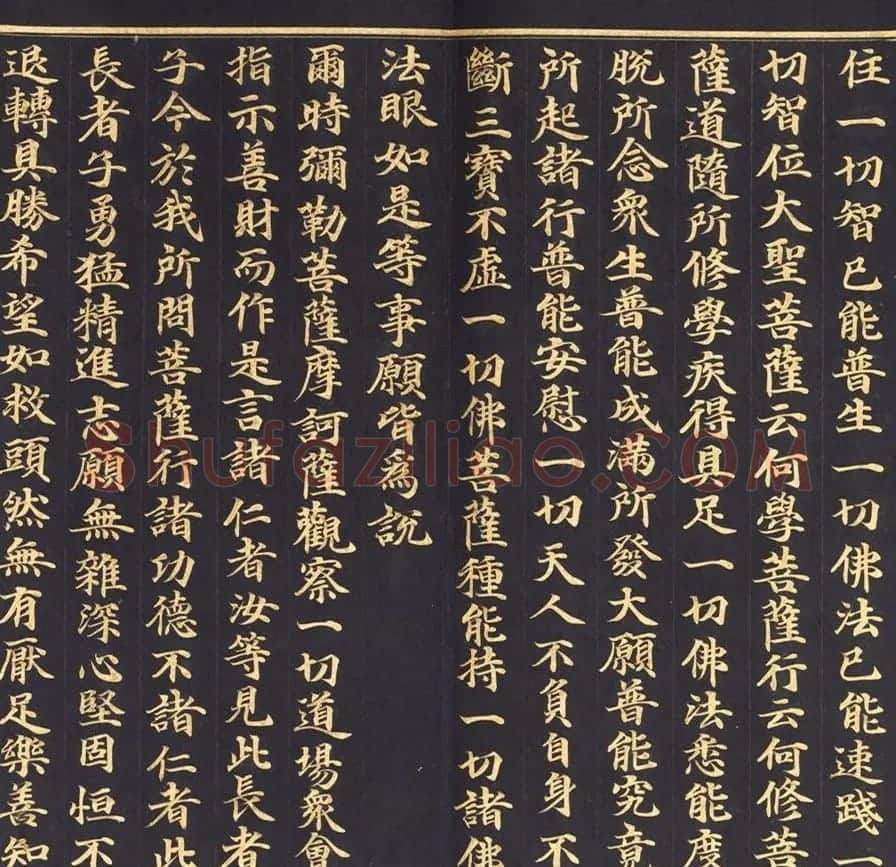 住一切智已能普生一切佛法已能速踐一
切智位大聖菩薩云何學菩薩行云何修菩
薩道隨所修學疾得具足一切佛法悉能度
脫所念衆生普能成滿所發大願普能究竟
所起諸行普能安慰一切天人不負自身不
斷三寶不虛一切佛菩薩種能持一切諸佛
法眼如是等事願皆爲說
爾時彌勒菩薩摩訶薩觀察一切道場衆會
指示善財而作是言諸仁者汝等見此長者
子今於我所問菩薩行諸功德不諸仁者此
長者子勇猛精進志願無雜深心堅固恒不
退轉具勝希望如救頭然無有厭足樂善知
Shufaziliao.COM